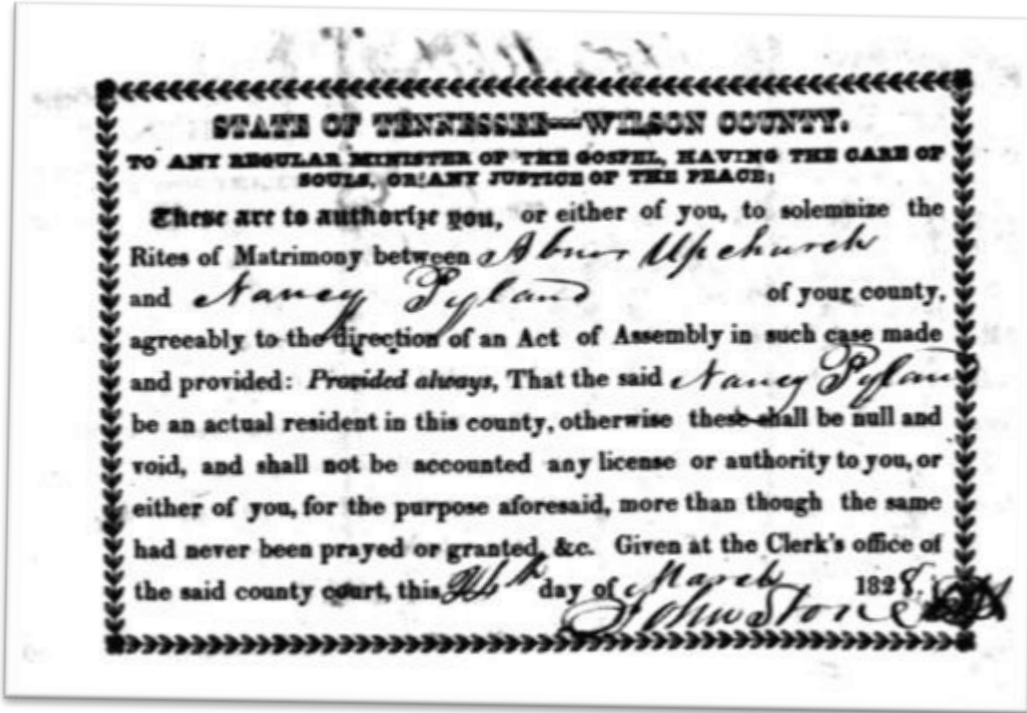 STATE OF TENNESSEE—WILSON COUNTY.
TO ANY REGULAR MINISTER OF THE GOSPEL, HAVING THE CARE OF
SOULS, OR ANY JUSTICE OF THE PEACE:
These are to authorize you, or either of you, to solemnize the
Rites of Matrimony between Abner Upchurch
and Nancy Pyland of your county,
agreeably to the direction of an Act of Assembly in such case made
and provided: Provided always, That the said Nancy Pyland
be an actual resident in this county, otherwise these shall be null and
void, and shall not be accounted any license or authority to you, or
either of you, for the purpose aforesaid, more than though the same
had never been prayed or granted, &c. Given at the Clerk's office of
the said county court, this 24th day of March 1828.
Johnston